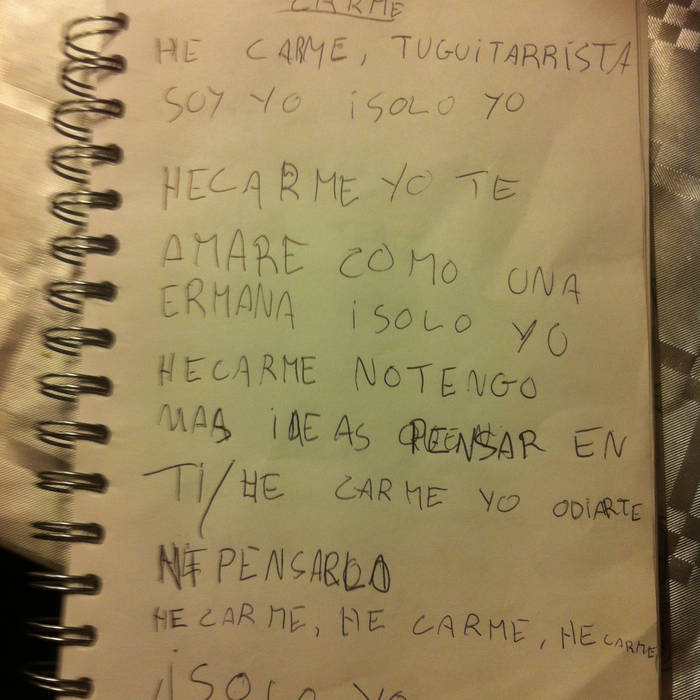 CARME
HE CARME, TUGUITARRISTA
SOY YO ¡SOLO YO
HECARME YO TE
AMARE COMO UNA
ERMANA ¡SOLO YO
HECARME NOTENGO
MAS IDEAS QUE PENSAR EN
TI/HE CARME YO ODIARTE
NI PENSARLO
HE CARME, HE CARME, HE CARME
¡SOLO YO